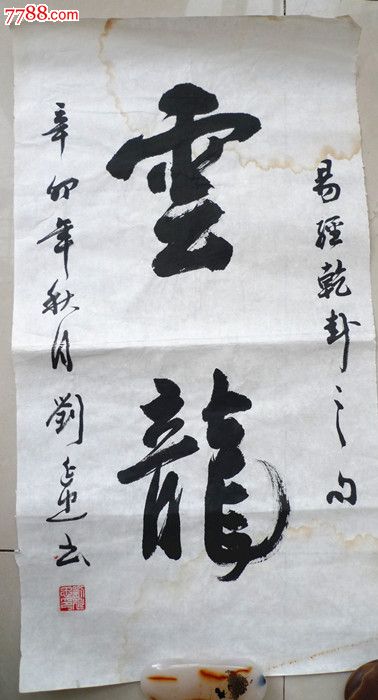 7788.com
易經乾卦之句
雲龍
辛卯年秋月劉书